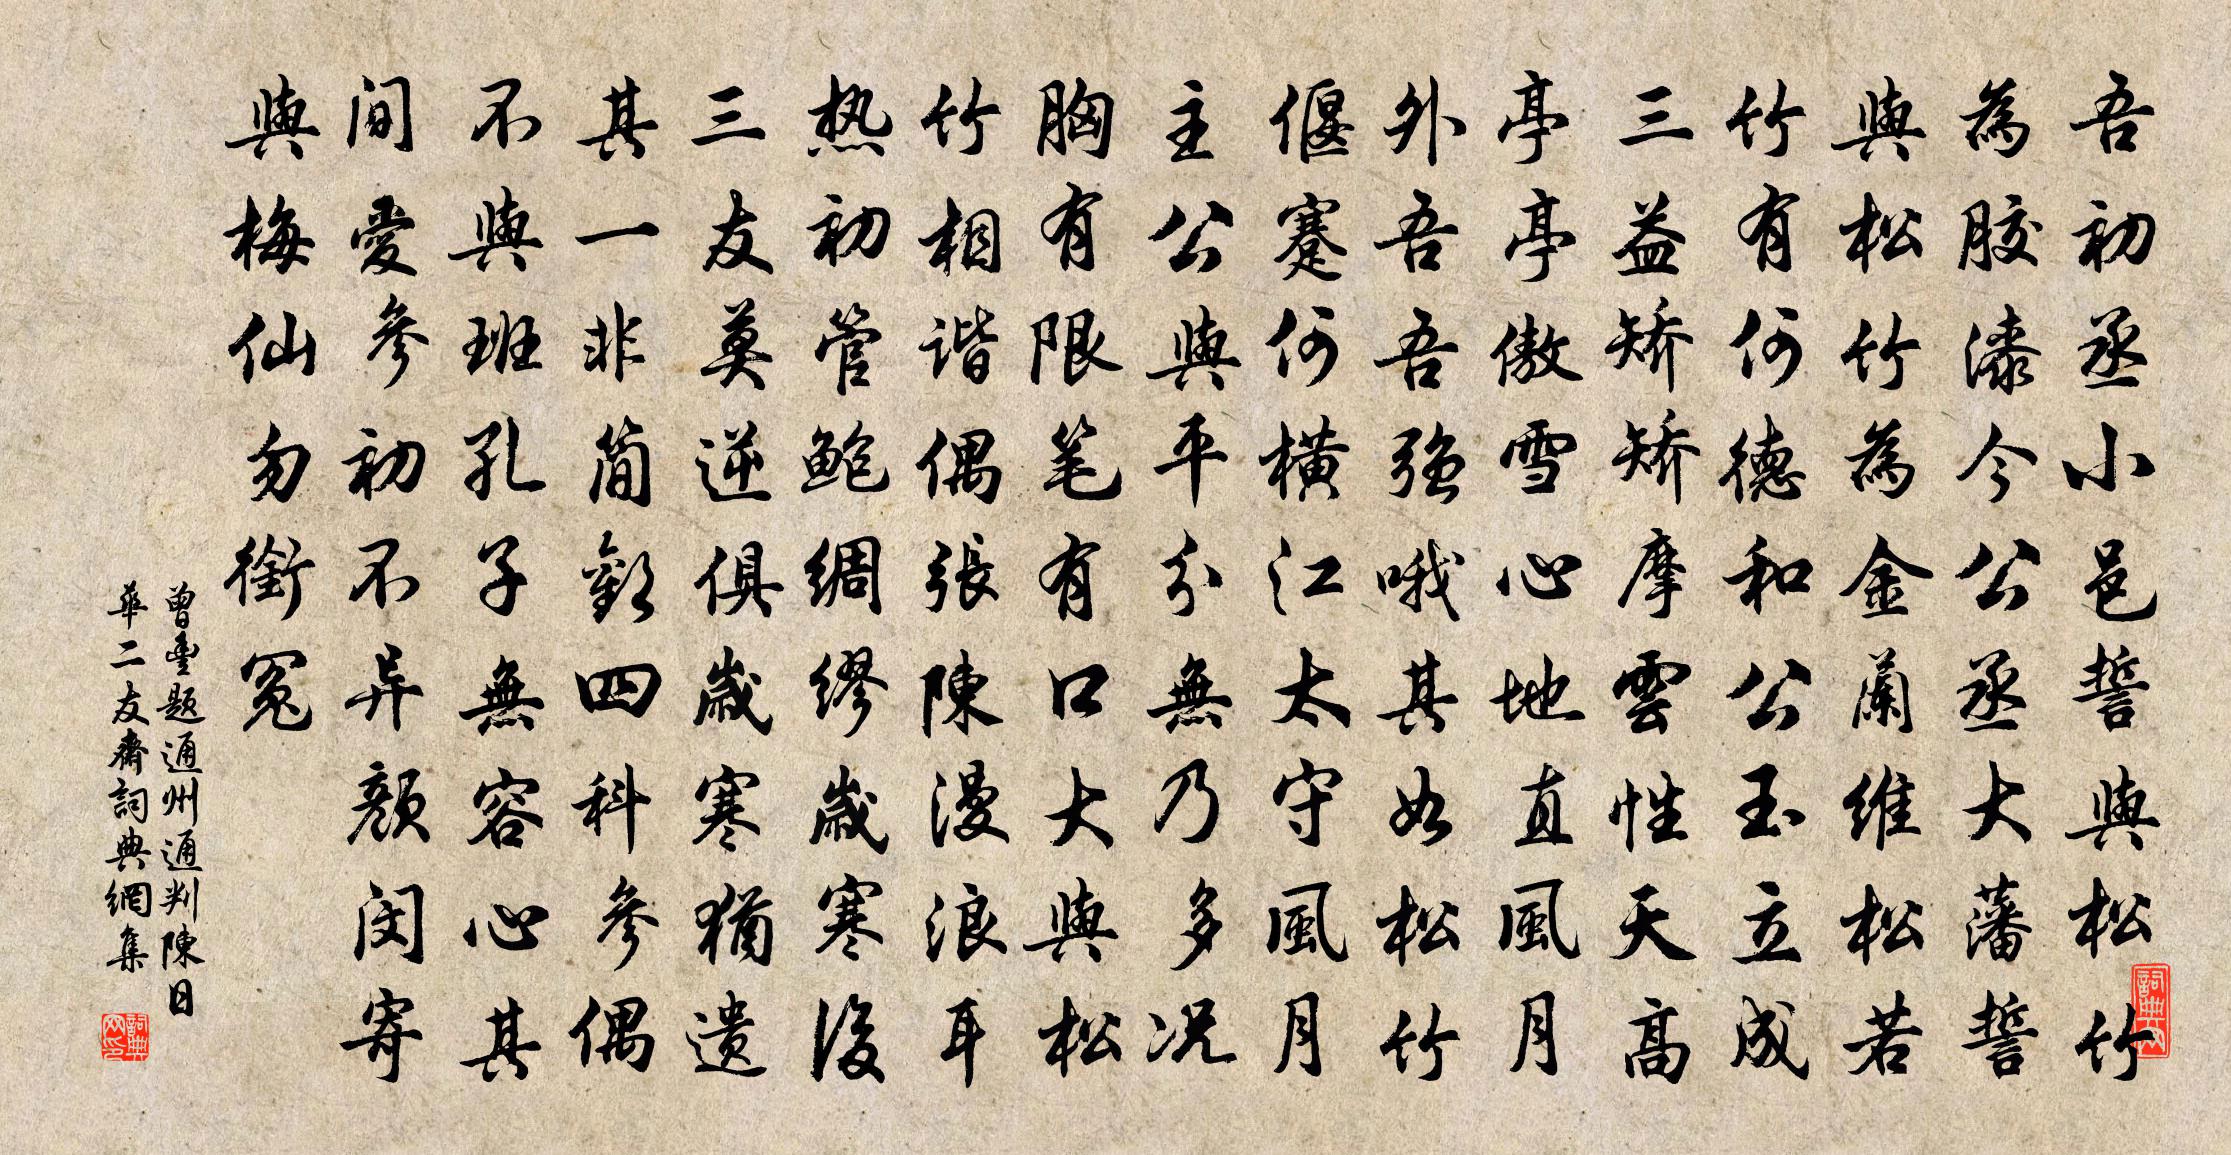 吾初丞小邑誓與松竹
為膠漆今公丞大藩誓
與松竹為金蘭維松若
竹有何德和公玉立成
三益矫矫摩雲性天高
亭亭傲雪心地直風月
外吾吾強哦其如松竹
偃蹇何橫江太守風月
主公與平分無乃多况
胸有限笔有口大與松
竹相谐偶張陳漫浪耳
热初管鲍綢繆歲寒後
三友莫逆俱歲寒猶遗
其一非簡歡四科參偶
不與班孔子無容心其
间愛參初不异顏闵寄
與梅仙勿銜冤
曾豐题通州通判陳日
華二友齋詞典網集
詞典网
詞典网印